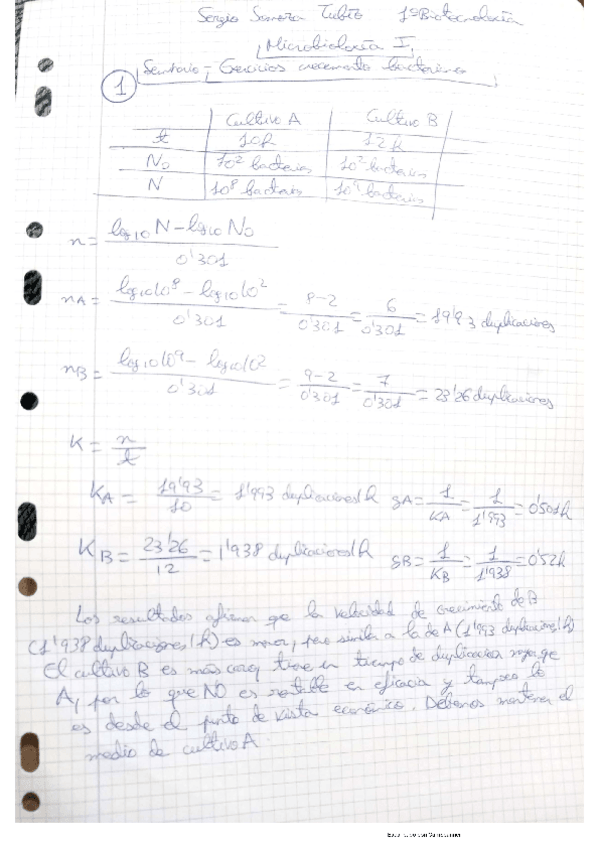 Sergio 1º Biotecnología
Microbiología I,
Seminario - Ejercicios crecimiento bacteriano
1
Cultivo A Cultivo B
t 10h 12h
N0 10² bacterias 10² bacterias
N 10⁸ bacterias 10⁹ bacterias
n = log10 N - log10 N0 / 0'301
nA = log10 10⁸ - log10 10² / 0'301 = 8-2 / 0'301 = 6 / 0'301 = 19'93 duplicaciones
nB = log10 10⁹ - log10 10² / 0'301 = 9-2 / 0'301 = 7 / 0'301 = 23'26 duplicaciones
K = n / t
KA = 19'93 / 10 = 1'993 duplicaciones/h gA = 1 / KA = 1 / 1'993 = 0'501h
KB = 23'26 / 12 = 1'938 duplicaciones/h gB = 1 / KB = 1 / 1'938 = 0'52h
Los resultados afirman que la velocidad de crecimiento de B
(1'938 duplicaciones/h) es menor, pero similar a la de A (1'993 duplicaciones/h)
El cultivo B es más caro y tiene un tiempo de duplicación mayor que
A, por lo que NO es rentable en eficacia y tampoco lo
es desde el punto de vista económico. Debemos mantener el
medio de cultivo A.
Escaneado con CamScanner